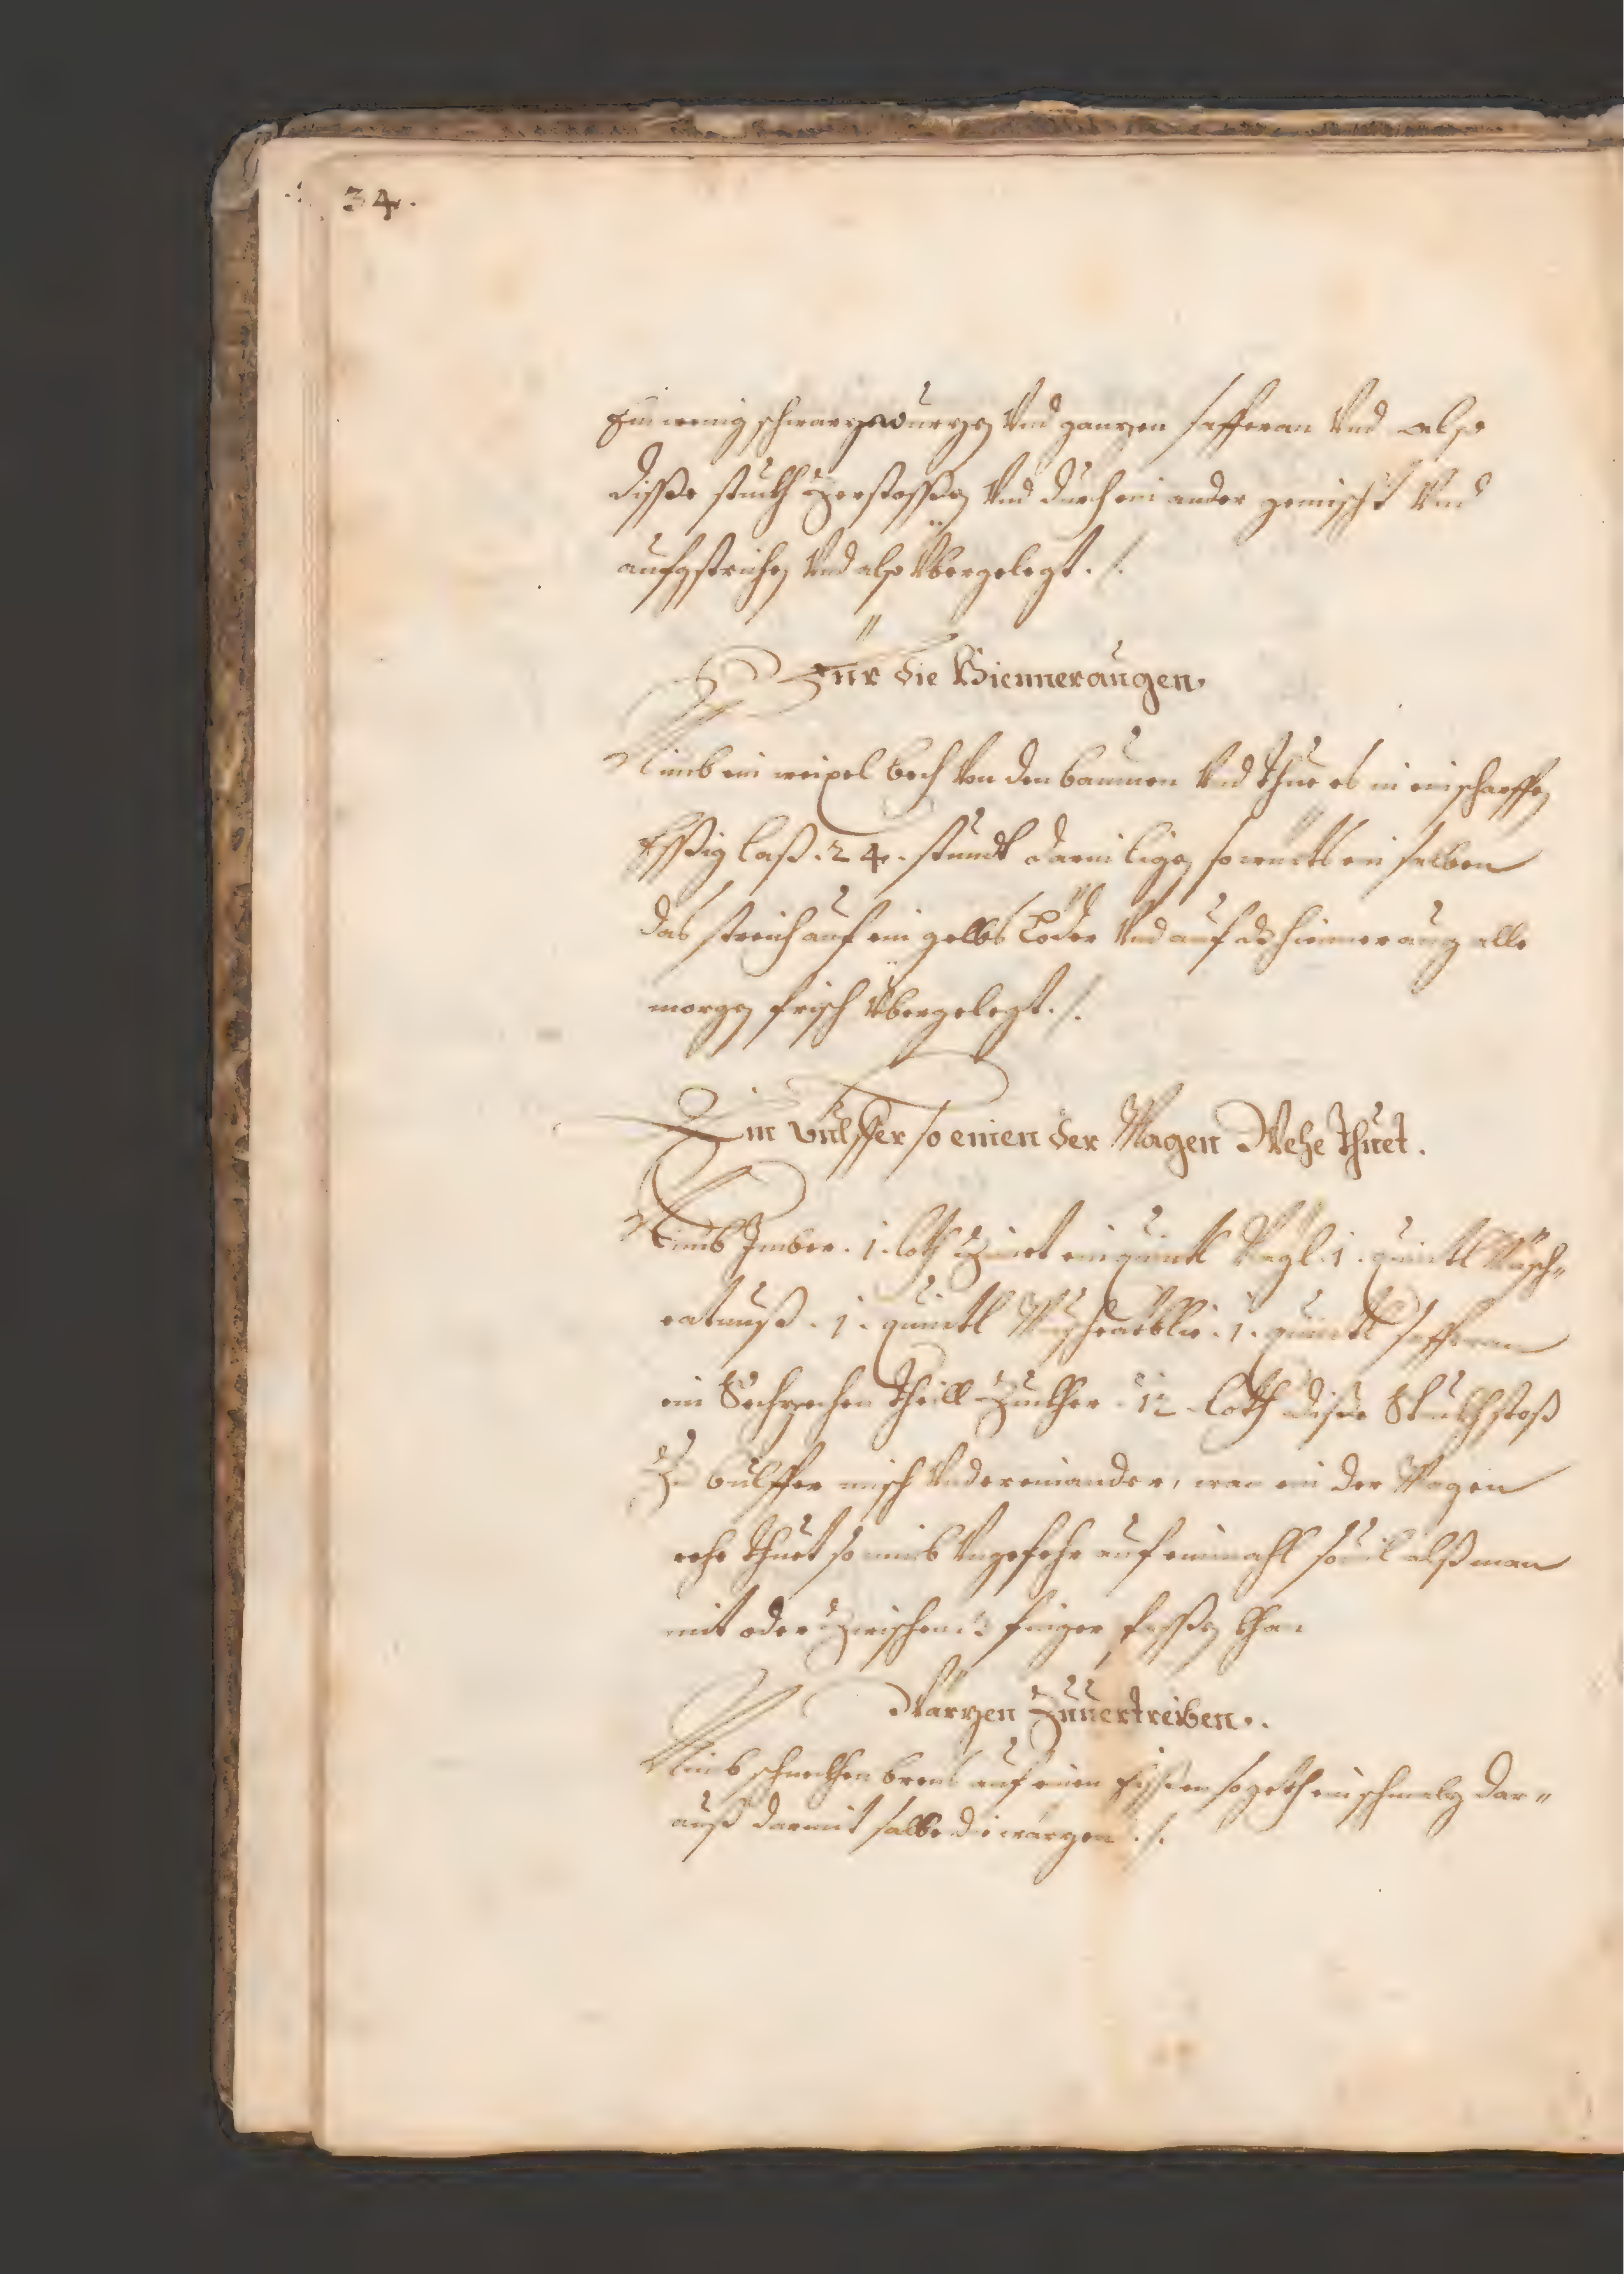 34.
Ein wenig schwarzwurzen vnd ganzen saffran vnd also
disße stuckh zerstossßen vnd durch ein ander gemischt vnd
aufgstrichen vnd also vbergelegt ./.
Für die Hienneraugen.
Nimb ein weixel bech von den baumen vnd thue es in ein scharffen
Essßig laß .24. stundt darin ligen so wirdts ein salben
das streich auf ein gelbs Löder vnd auf dz hienneraug alle
morgen frisch vbergelegt ./.
Ein Bulffer so einen der Magen Wehe thuet.
Nimb Imber .1. loth Zimet ein quintl Nägl .1. quintl Musch„
eatnuß .1. quintl Muscheatblie .1. quintl saffran
ein Sechzechen theill Zuckher .12. loth disße Stuckh stoß
Zu bulffer misch vndereinander, wan ein der Magen
wehe thuet so nimb vngefehr auf einmahl souil alß man
mit oder zwischen finger fassßen khan
Warzen Zuuertreiben..
Nimb schneckhen brads auf einen Eissßen so geth ein schmalz dar„
auß darmit salbe die warzen ./.